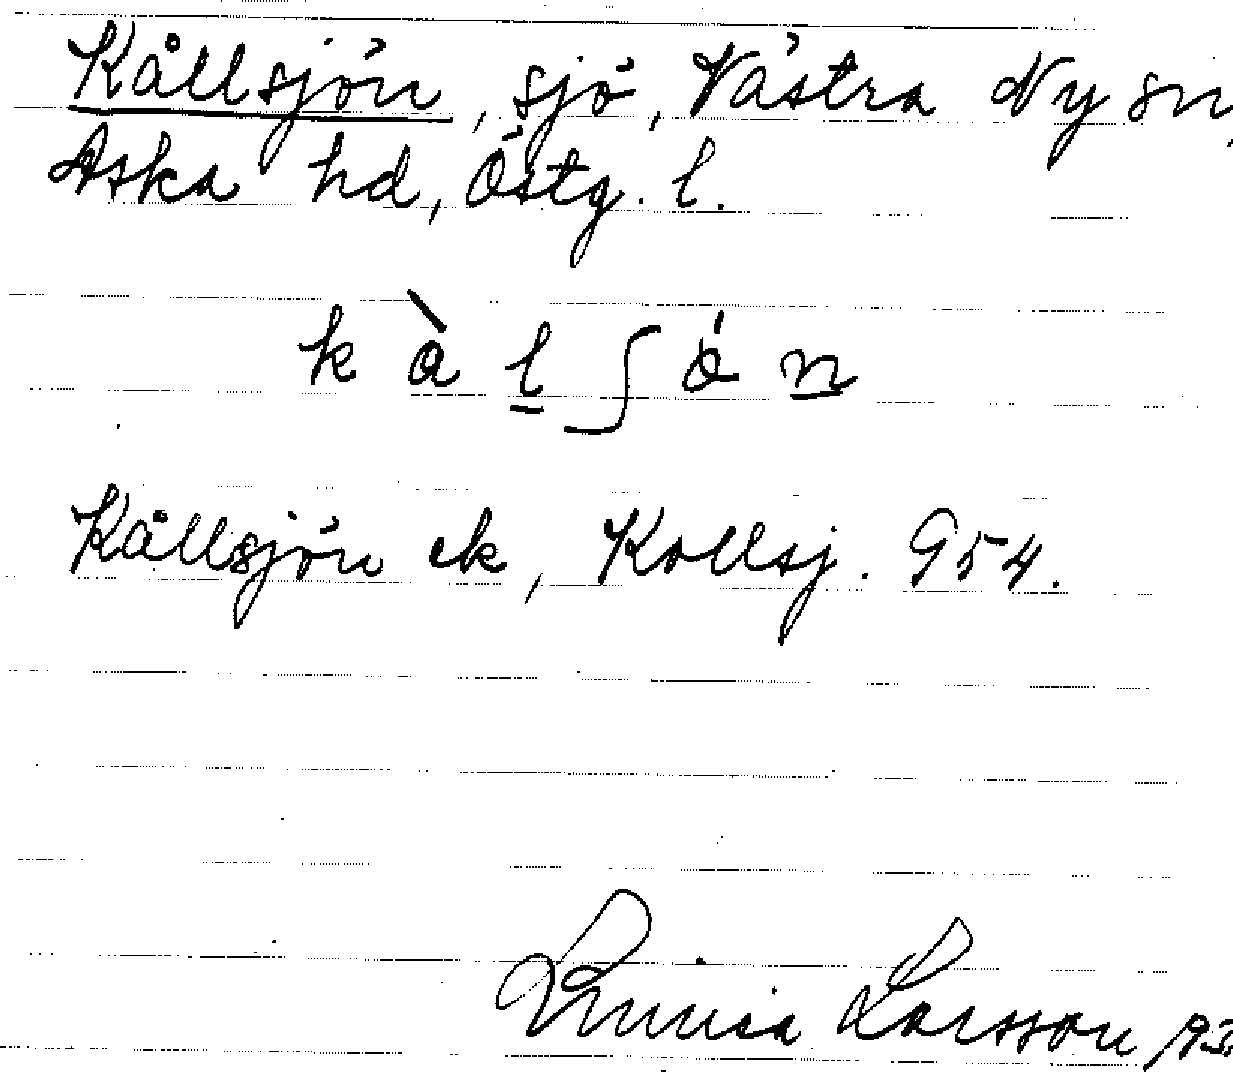 Kållsjön, sjö, Västra Ny sn,
Aska hd, Östg. l.
k å̀ l̲ ʃ ö́ n̲
Kållsjön ek, Kollsj. G54.
Linnéa Larsson 193